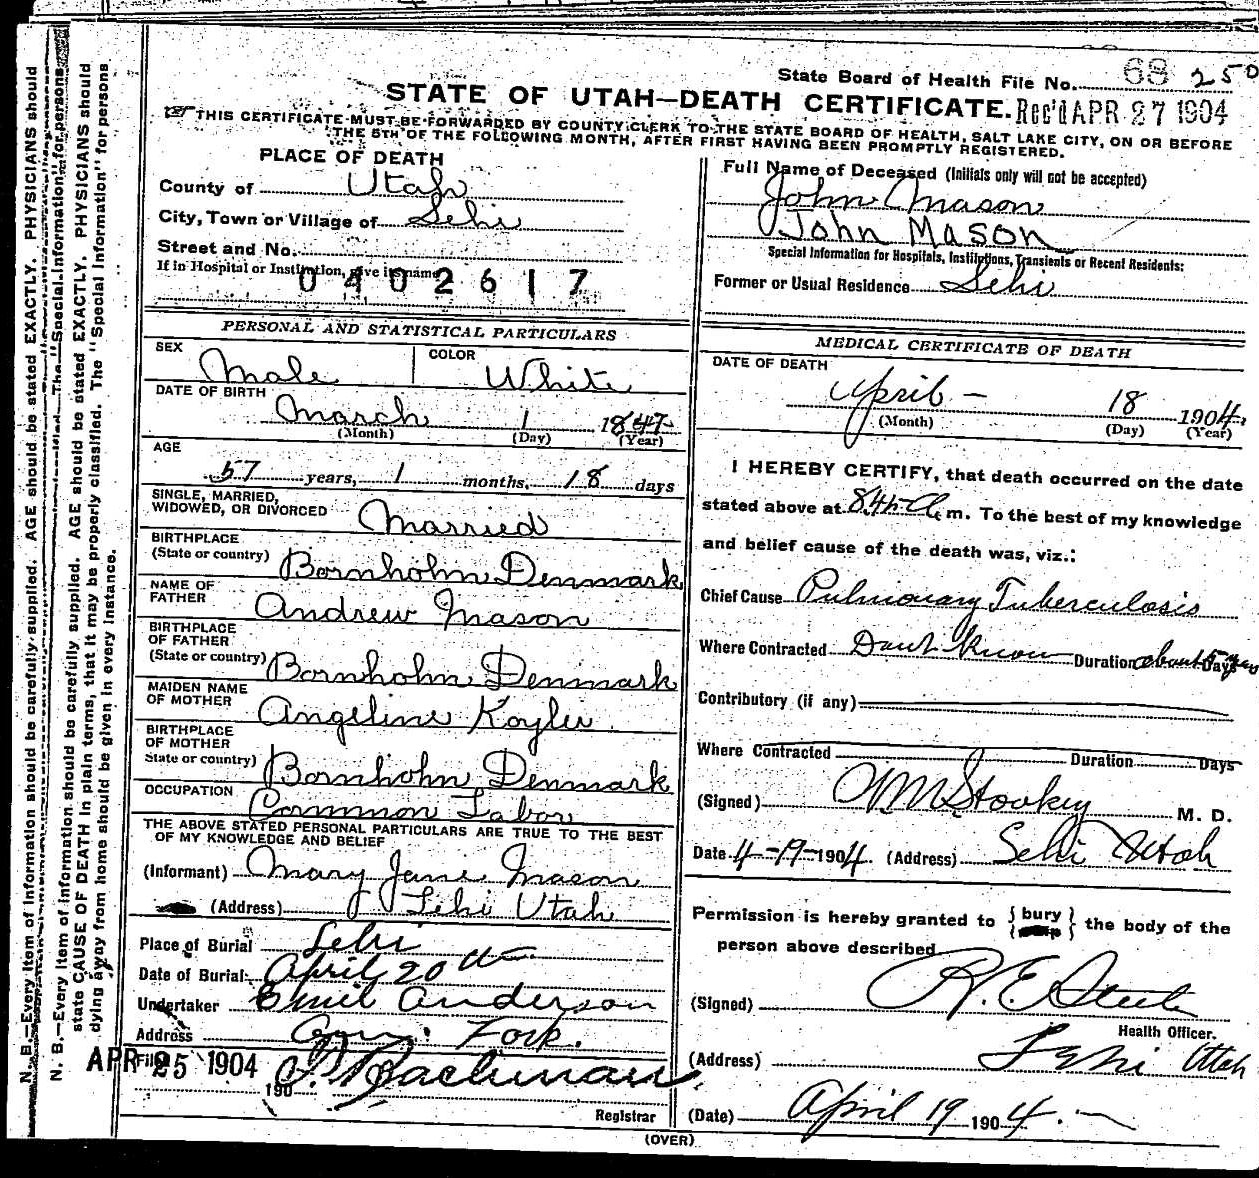 State Board of Health File No. 68 250
STATE OF UTAH—DEATH CERTIFICATE. Rec'd APR 27 1904
THIS CERTIFICATE MUST BE FORWARDED BY COUNTY CLERK TO THE STATE BOARD OF HEALTH, SALT LAKE CITY, ON OR BEFORE
THE 5TH OF THE FOLLOWING MONTH, AFTER FIRST HAVING BEEN PROMPTLY REGISTERED.
PLACE OF DEATH
County of Utah
City, Town or Village of Lehi
Street and No.
If in Hospital or Institution, give its name
0402617
Full Name of Deceased (Initials only will not be accepted)
John Mason
John Mason
Special Information for Hospitals, Institutions, Transients or Recent Residents:
Former or Usual Residence Lehi
PERSONAL AND STATISTICAL PARTICULARS
SEX Male COLOR White
DATE OF BIRTH
March 1 1847
(Month) (Day) (Year)
AGE
57 years, 1 months, 18 days
SINGLE, MARRIED,
WIDOWED, OR DIVORCED Married
BIRTHPLACE
(State or country) Bornholm Denmark
NAME OF
FATHER Andrew Mason
BIRTHPLACE
OF FATHER
(State or country) Bornholm Denmark
MAIDEN NAME
OF MOTHER Angeline
BIRTHPLACE
OF MOTHER
State or country) Bornholm Denmark
OCCUPATION Common Labor
THE ABOVE STATED PERSONAL PARTICULARS ARE TRUE TO THE BEST
OF MY KNOWLEDGE AND BELIEF
(Informant) Mary Jane Mason
(Address) Lehi Utah
Place of Burial Lehi
Date of Burial: April 20th
Undertaker Emil Anderson
Address Am. Fork.
Filed APR 25 1904
190
Registrar
MEDICAL CERTIFICATE OF DEATH
DATE OF DEATH
April - 18 1904
(Month) (Day) (Year)
I HEREBY CERTIFY, that death occurred on the date
stated above at A. m. To the best of my knowledge
and belief cause of the death was, viz.:
Chief Cause Pulmonary Tuberculosis
Where Contracted Dont Know Duration about 5 years Days
Contributory (if any)
Where Contracted Duration Days
(Signed) Stookey M. D.
Date 4-19-1904. (Address) Lehi Utah
Permission is hereby granted to {bury} the body of the
person above described
(Signed) R. E. Steele
Health Officer.
(Address) Lehi Utah
(Date) April 19 1904.
(OVER)
N. B.—Every item of information should be carefully supplied. AGE should be stated EXACTLY. PHYSICIANS should
The "Special Information" for persons
N. B.—Every item of information should be carefully supplied. AGE should be stated EXACTLY. PHYSICIANS should
state CAUSE OF DEATH in plain terms, that it may be properly classified. The "Special Information" for persons
dying away from home should be given in every instance.